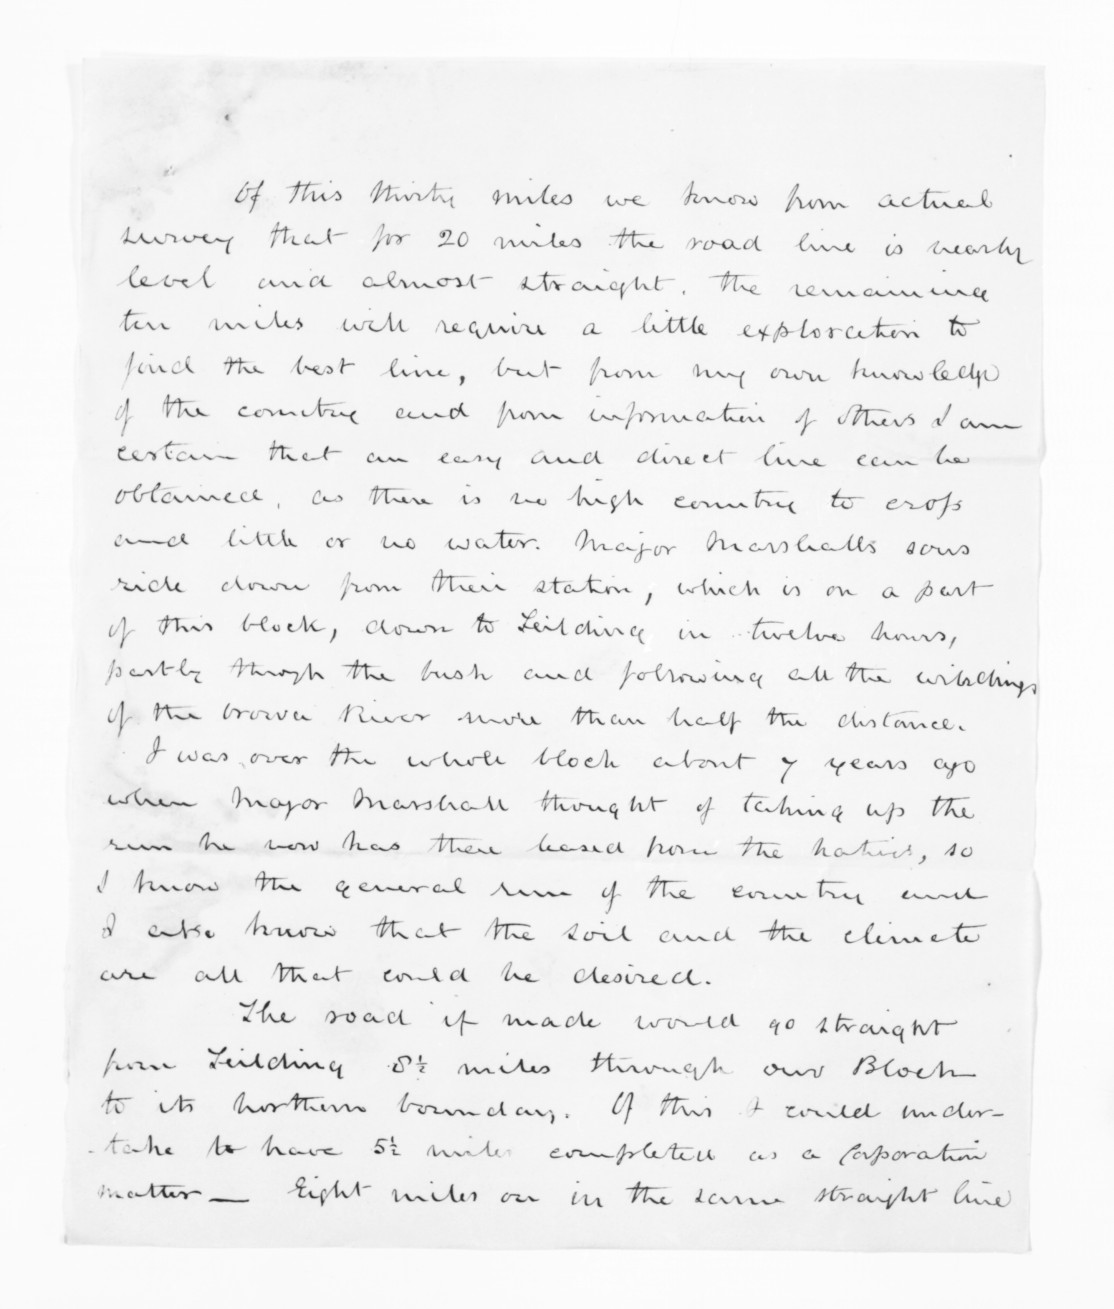 Of this thirty miles we know from actual
survey that for 20 miles the road line is nearly
level and almost straight. The remaining
ten miles will require a little exploration to
find the best line, but from my own knowledge
of the country and from information of others I am
certain that an easy and direct line can be
obtained, as there is no high country to cross
and little or no water. Major Marshalls sons
ride down from their station, which is on a part
of this block, down to Feilding in twelve hours,
partly through the bush and following all the windings
of the River more than half the distance.
I was over the whole block about 7 years ago
when Major Marshall thought of taking up the
run he now has there leased from the natives, so
I know the general run of the country and
I also know that the soil and the climate
are all that could be desired.
The road if made would go straight
from Feilding 8½ miles through our Block
to its northern boundary. Of this I could under-
take to have 5½ miles completed as a Corporation
matter — Eight miles on in the same straight line